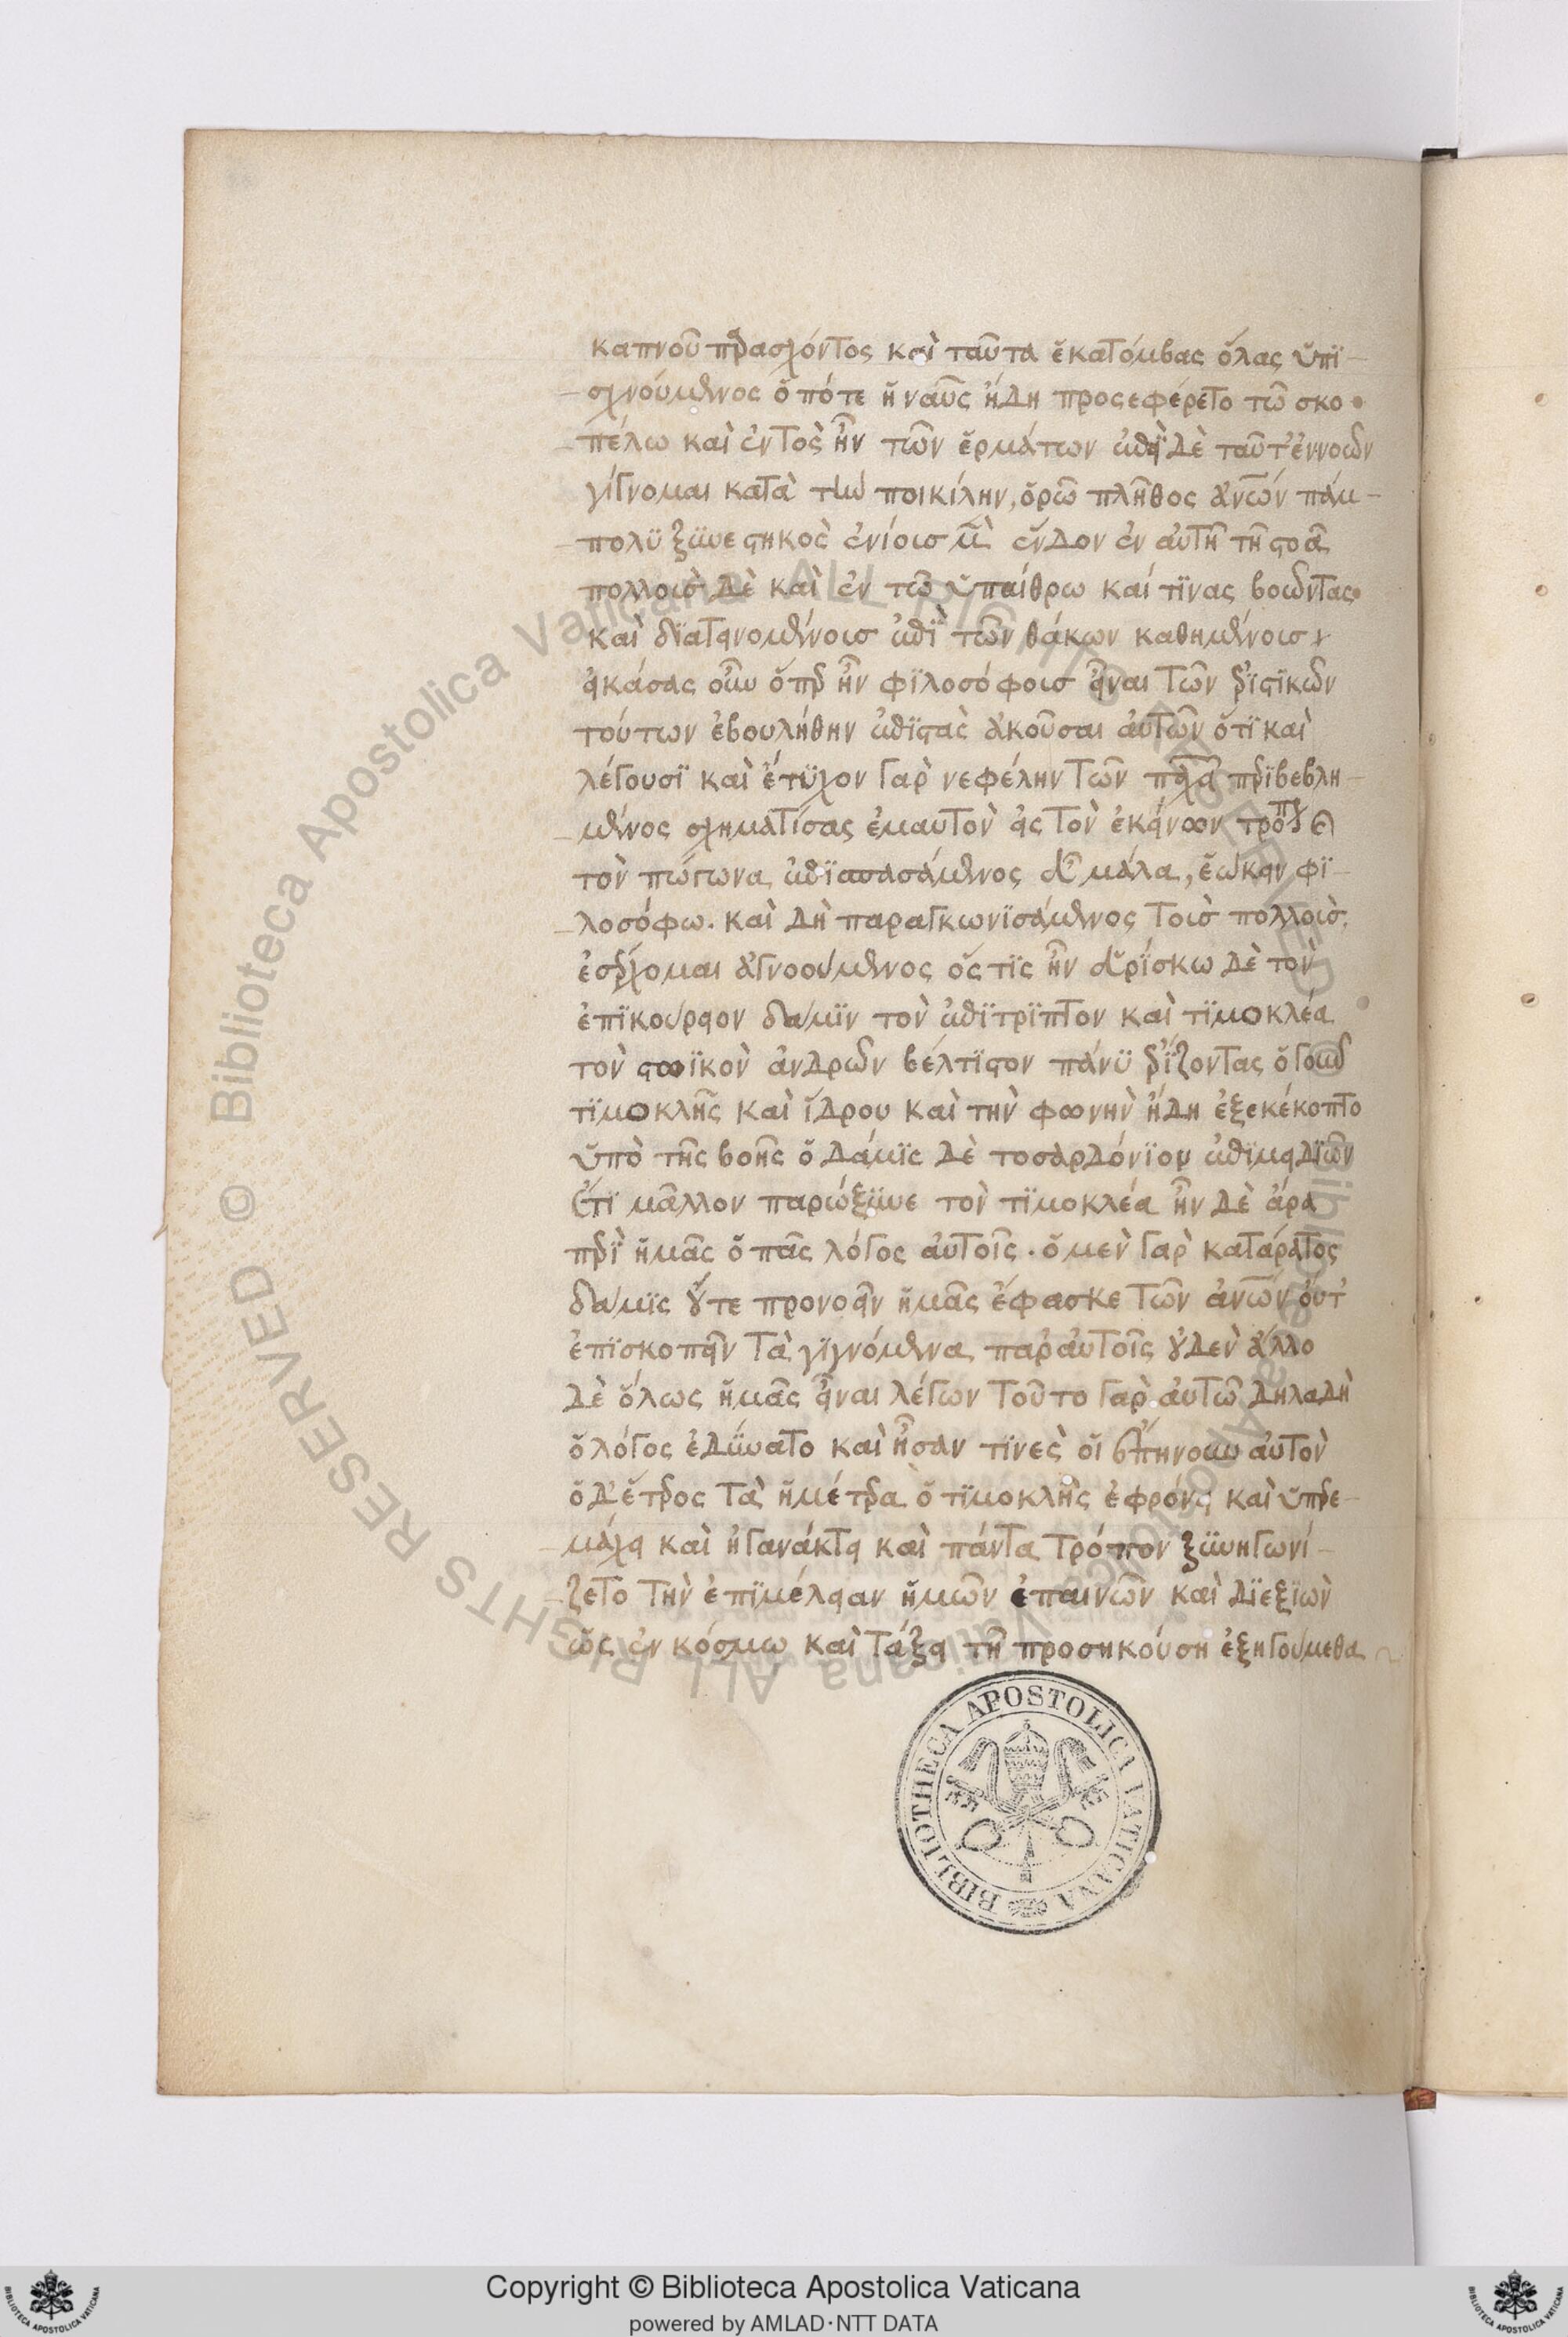 καπνοῦ παρασχόντος καὶ ταῦτα ἑκατόμβας ὅλας ὑπϊ-
-σχνούμενος ὁπότε ἡ ναῦς ἤδη προςεφέρετο τῶ σκο
-πέλω καὶ ἐντὸς ἦν τῶν ἑρμάτων ἐπεὶ δὲ ταῦτ' ἐννοῶν
γίγνομαι κατὰ τὴν ποικίλην, ὁρῶ πλῆθος ἀνων πάμ-
-πολϋ ξϋνεστηκὸς ἐνίοισ μὲν ἔνδον ἐν αὐτῆ τῆ στοᾶ
πολλοὺσ δὲ καὶ ἐν τῶ ὑπαίθρω καί τϊνας βοῶντας
καὶ δϊατεινομένουσ ἐπὶ τῶν θάκων καθημένουσ
εἰκάσας οὖν ὅπερ ἦν φϊλοσόφουσ εἶναι τῶν ἐρϊστϊκῶν
τούτων ἐβουλήθην ἐπϊστὰς ἀκοῦσαι αὐτῶν ὅτϊ καὶ
λέγουσϊ καὶ ἔτϋχον γὰρ νεφέλην τῶν παχειῶν περϊβεβλη-
-μένος σχηματίσας ἐμαυτὸν εἰς τὸν ἐκείνων τρόπον καὶ
τὸν πώγωνα ἐπϊσπασάμενος εὖ μάλα, ἐώκειν φϊ-
-λοσόφω. καὶ δὴ παραγκωνϊσάμενος τοὺσ πολλοὺσ
ἐσέρχομαι ἀγνοούμενος ὅς τϊς ἦν εὑρίσκω δὲ τὸν
ἐπϊκούρειον δάμϊν τὸν ἐπίτρϊπτον καὶ τϊμοκλέα
τὸν στωϊκὸν ἀνδρῶν βέλτϊστον πάνϋ ἐρϊζοντας ὁ γοῦν
τϊμοκλῆς καὶ ἵδρου καὶ τὴν φωνὴν ἤδη ἐξεκέκοπτο
ὑπὸ τῆς βοῆς ὁ δάμϊς δὲ τοσαρδόνϊον ἐπϊμειδϊῶν
ἔτϊ μᾶλλον παρώξϋνε τὸν τϊμοκλέα ἦν δὲ ἄρα
περὶ ἡμᾶς ὁ πᾶς λόγος αὐτοῖς. ὁ μεν γὰρ κατάρατος
δάμϊς οὔτε προνοεῖν ἡμᾶς ἔφασκε τῶν ἀνων οὔτ'
ἐπϊσκοπεῖν τὰ γϊγνόμενα παρ' αὐτοῖς οὐδὲν ἄλλο
δὲ ὅλως ἡμᾶς εἶναι λέγων τοῦτο γὰρ αὐτῶ δηλαδὴ
ὁ λόγος ἐδΰνατο καὶ ἦσάν τϊνες οἳ ἐπήνουν αὐτὸν
ὁ δ' ἕτερος τὰ ἡμέτερα ὁ τϊμοκλῆς ἐφρόνει καὶ ὑπερε-
-μάχει καὶ ἠγανάκτει καὶ πάντα τρόπον ξϋνηγωνί-
-ζετο τὴν ἐπϊμέλειαν ἡμῶν ἐπαινῶν καὶ δϊεξϊὼν
ὡς ἐν κόσμω καὶ τάξει τῆ προσηκούση ἐξηγούμεθα
BIBLIOTHECA APOSTOLICA VATICANA
© Biblioteca Apostolica Vaticana ALL RIGHTS RESERVED
Copyright © Biblioteca Apostolica Vaticana
powered by AMLAD·NTT DATA